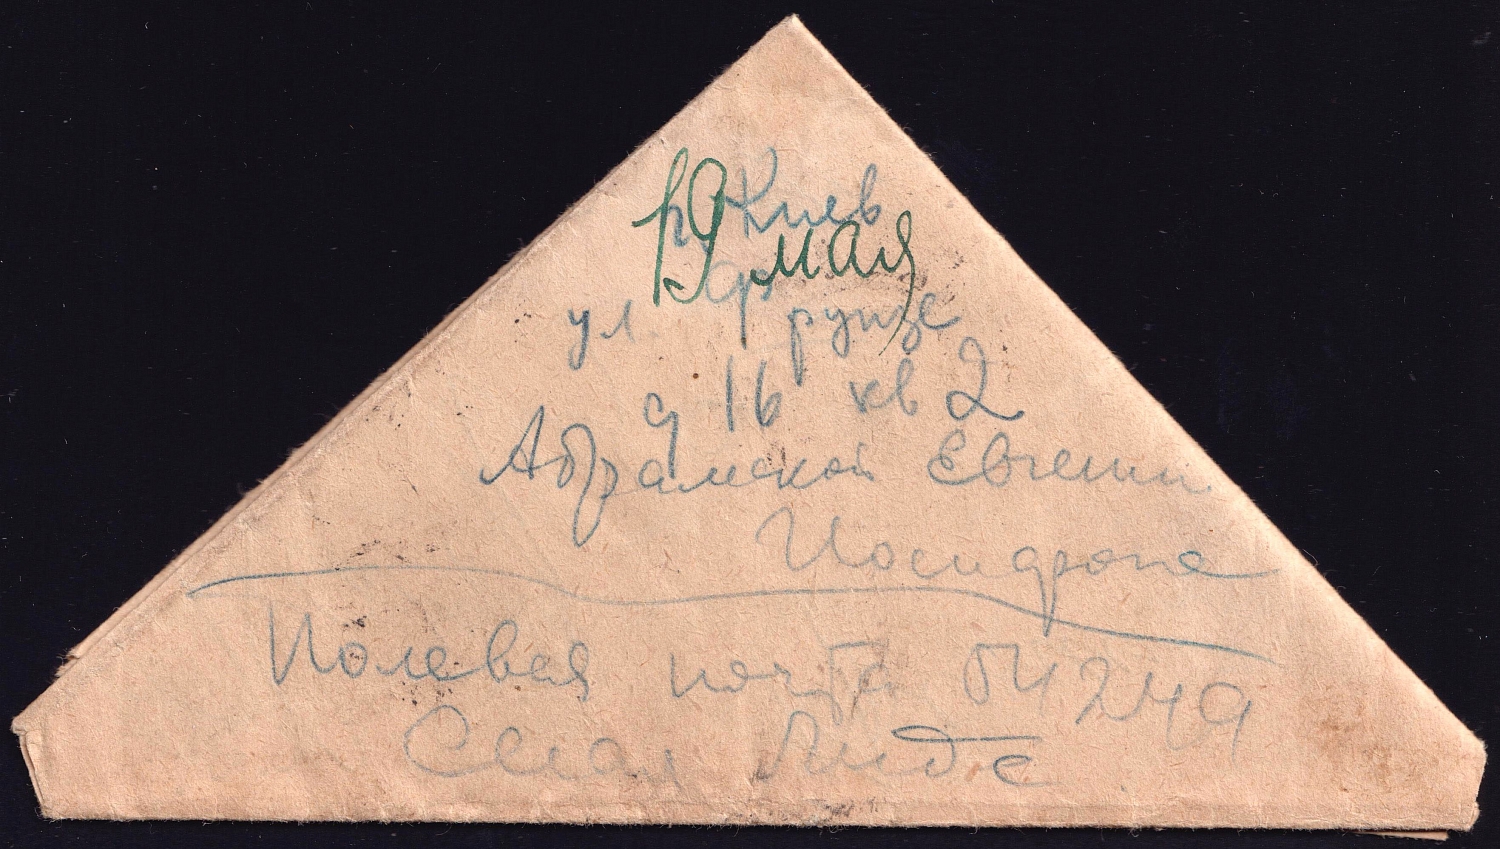 г. Киев
19 мая
ул. Фрунзе
д 16 кв 2
Абрамской Евгении
Иосифовне
Полевая почта 54249